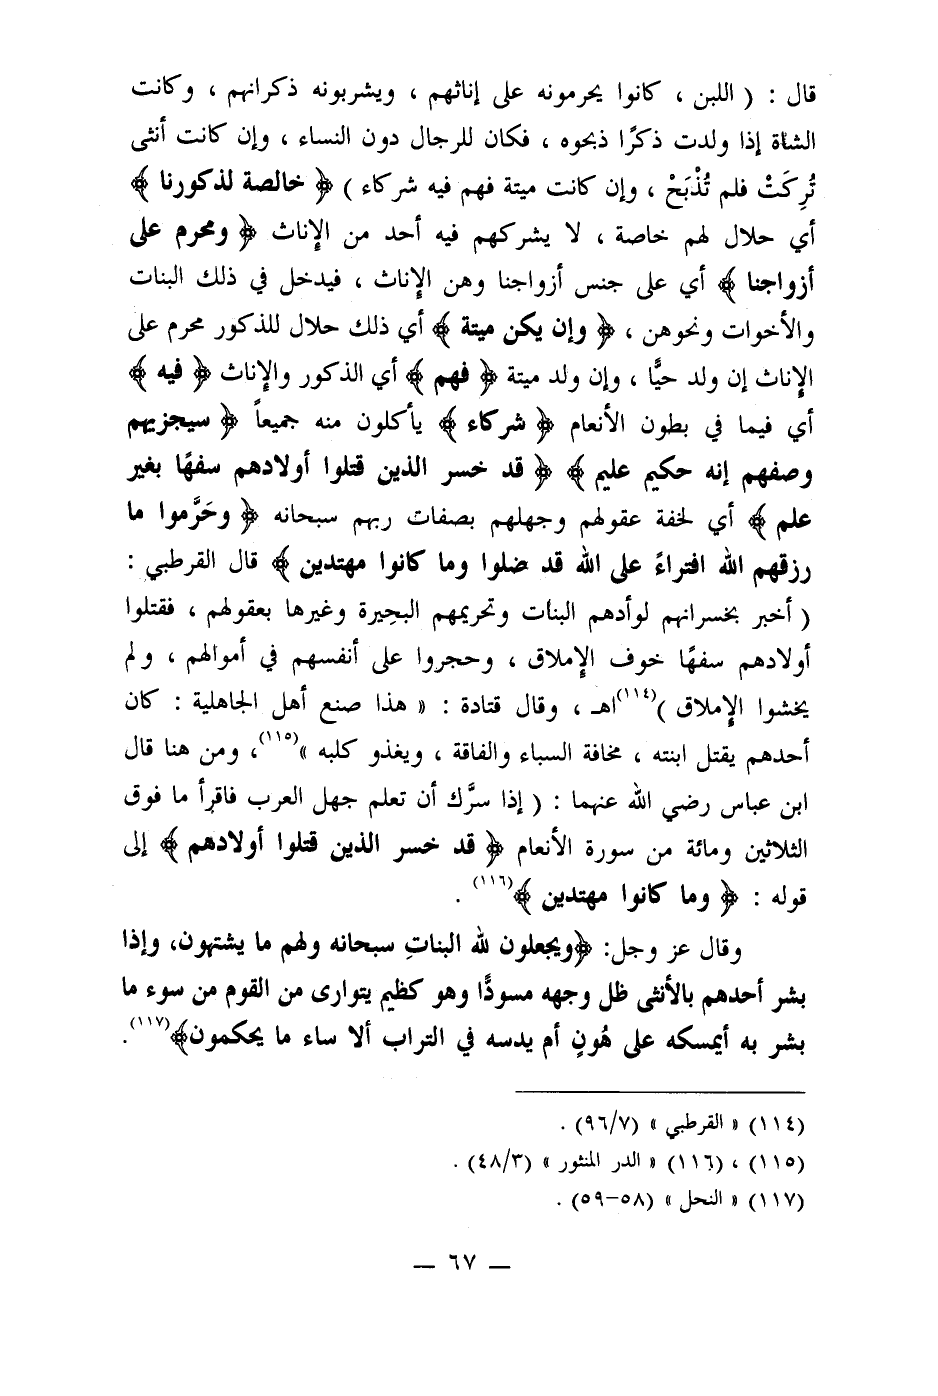 قال : ( اللبن ، كانوا يحرمونه على إناثهم ، ويشربونه ذكرانهم ، وكانت
الشاة إذا ولدت ذكرًا ذبحوه ، فكان للرجال دون النساء ، وإن كانت أنثى
تُرِكَتْ فلم تُذْبَحْ ، وإن كانت ميتة فهم فيه شركاء ) ﴿ خالصة لذكورنا ﴾
أي حلال لهم خاصة ، لا يشركهم فيه أحد من الإناث ﴿ ومحرم على
أزواجنا ﴾ أي على جنس أزواجنا وهن الإناث ، فيدخل في ذلك البنات
والأخوات ونحوهن ، ﴿ وإن يكن ميتة ﴾ أي ذلك حلال للذكور محرم على
الإناث إن ولد حيًّا ، وإن ولد ميتة ﴿ فهم ﴾ أي الذكور والإناث ﴿ فيه ﴾
أي فيما في بطون الأنعام ﴿ شركاء ﴾ يأكلون منه جميعاً ﴿ سيجزيهم
وصفهم إنه حكيم عليم ﴾ ﴿ قد خسر الذين قتلوا أولادهم سفهًا بغير
علم ﴾ أي لخفة عقولهم وجهلهم بصفات ربهم سبحانه ﴿ وحَرَّموا ما
رزقهم الله افتراءً على الله قد ضلوا وما كانوا مهتدين ﴾ قال القرطبي :
( أخبر بخسرانهم لوأدهم البنات وتحريمهم البحيرة وغيرها بعقولهم ، فقتلوا
أولادهم سفهًا خوف الإملاق ، وحجروا على أنفسهم في أموالهم ، ولم
يخشوا الإملاق )(١١٤)اهـ ، وقال قتادة : « هذا صنع أهل الجاهلية : كان
أحدهم يقتل ابنته ، مخافة السباء والفاقة ، ويغذو كلبه »(١١٥)، ومن هنا قال
ابن عباس رضي الله عنهما : ( إذا سرَّك أن تعلم جهل العرب فاقرأ ما فوق
الثلاثين ومائة من سورة الأنعام ﴿ قد خسر الذين قتلوا أولادهم ﴾ إلى
قوله : ﴿ وما كانوا مهتدين ﴾(١١٦) .
وقال عز وجل: ﴿ويجعلون لله البناتِ سبحانه ولهم ما يشتهون، وإذا
بشر أحدهم بالأنثى ظل وجهه مسودًّا وهو كظيم يتوارى من القوم من سوء ما
بشر به أيمسكه على هُونٍ أم يدسه في التراب ألا ساء ما يحكمون﴾(١١٧).
(١١٤) « القرطبي » (٩٦/٧) .
(١١٥) ، (١١٦) « الدر المنثور » (٤٨/٣) .
(١١٧) « النحل » (٥٨-٥٩) .
— ٦٧ —